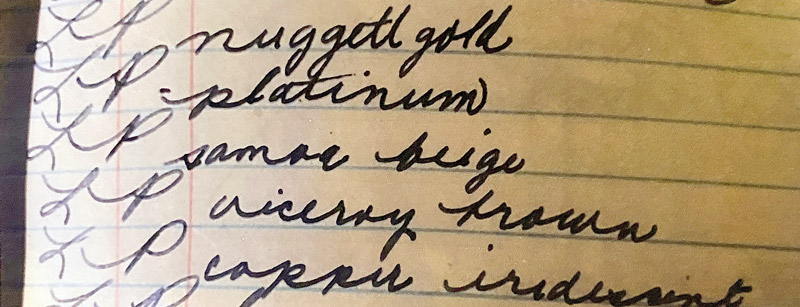 LP nuggett gold
LP - platinum
LP samoa beige
LP viceroy brown
LP copper iridescent
LP